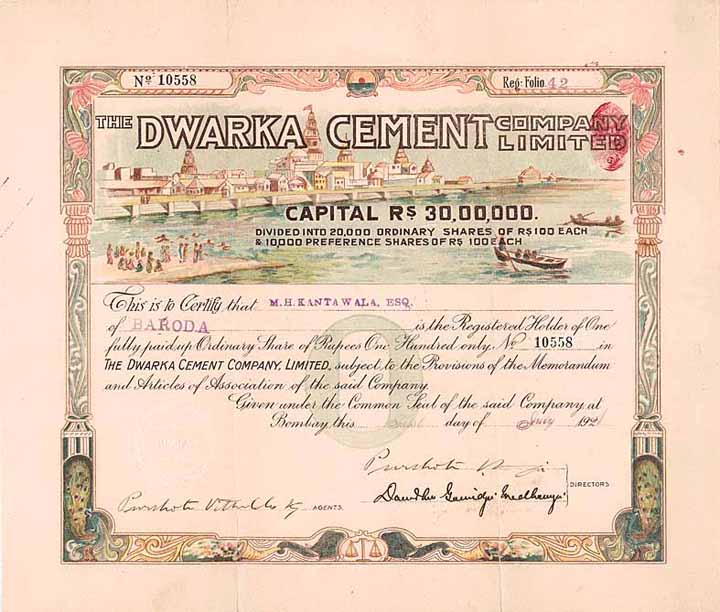 Nº 10558
Reg: Folio 42
THE DWARKA CEMENT COMPANY LIMITED
CAPITAL RS 30,00,000.
DIVIDED INTO 20,000 ORDINARY SHARES OF RS 100 EACH
& 10,000 PREFERENCE SHARES OF RS 100 EACH
This is to Certify that M.H.KANTAWALA, ESQ.
of BARODA is the Registered Holder of One
fully paid up Ordinary Share of Rupees One Hundred only. Nº 10558 in
THE DWARKA CEMENT COMPANY, LIMITED, subject to the Provisions of the Memorandum
and Articles of Association of the said Company.
Given under the Common Seal of the said Company at
Bombay, this day of 192
DIRECTORS
AGENTS.